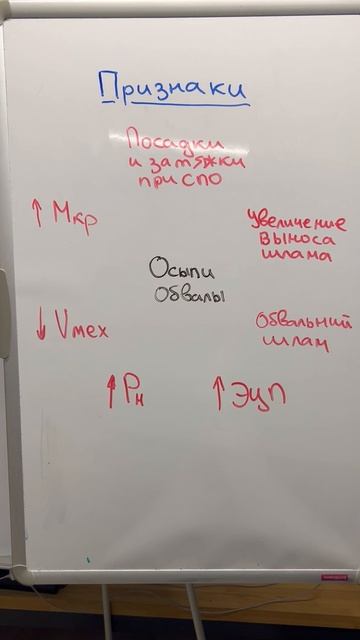 Признаки
Посадки
и затяжки
при СПО
↑ Мкр
Увеличение
выноса
шлама
Осыпи
Обвалы
↓ Vмех
Обвальний
шлам
↑ Рн
↑ ЭЦП